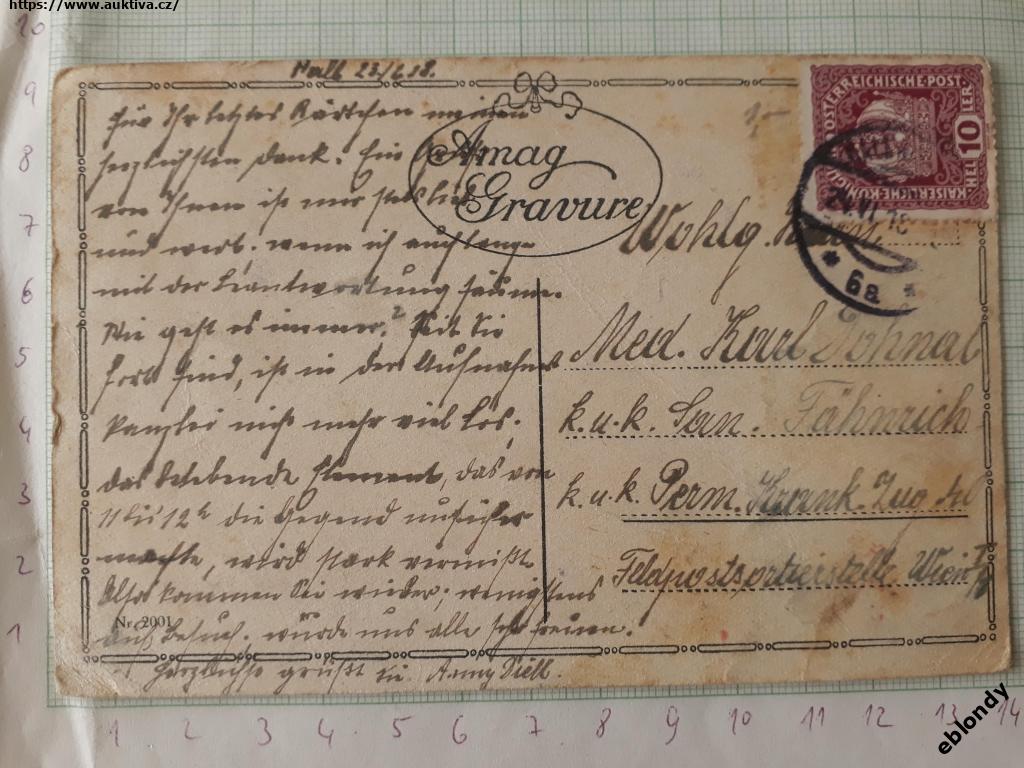 https://www.auktiva.cz/
23/6.18.
für Ihr letztes Kärtchen meinen
herzlichsten Dank. Ein
von Ihnen ist mir stets lieb
und wert, wenn ich auch lange
mit der Beantwortung säume.
Wie geht es immer? Seit Sie
fort sind, ist in der Aufnahms
kanzlei nicht mehr viel los;
das belebende Element, das von
11 bis 12h die Gegend unsicher
machte, wird stark vermißt.
Also kommen Sie wieder, wenigstens
auf Besuch. würde uns alle sehr freuen.
Herzlichst grüßt Sie
Nr. 2001
Amag
Gravure
ÖSTERREICHISCHE·POST
HELLER
10
24.VI.18
6a
Wohlg. Herrn
Med. Karl Dohnal
k.u.k. San. Fähnrich
k.u.k. Perm. Krank. Zug
Feldpostsortierstelle Wien
10
9
8
7
6
5
4
3
2
1
1 2 3 4 5 6 7 8 9 10 11 12 13 14
eblondy